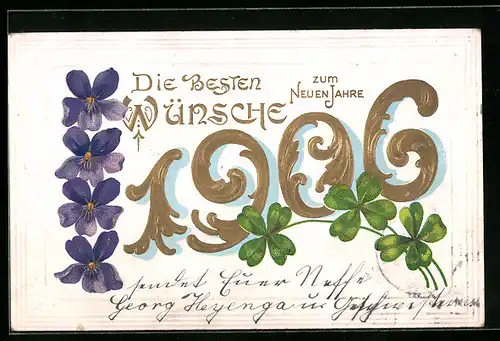 Die Besten
Wünsche
zum
Neuen Jahre
1906
sendet Euer Neffe
Georg Heyenga u. Geschwister